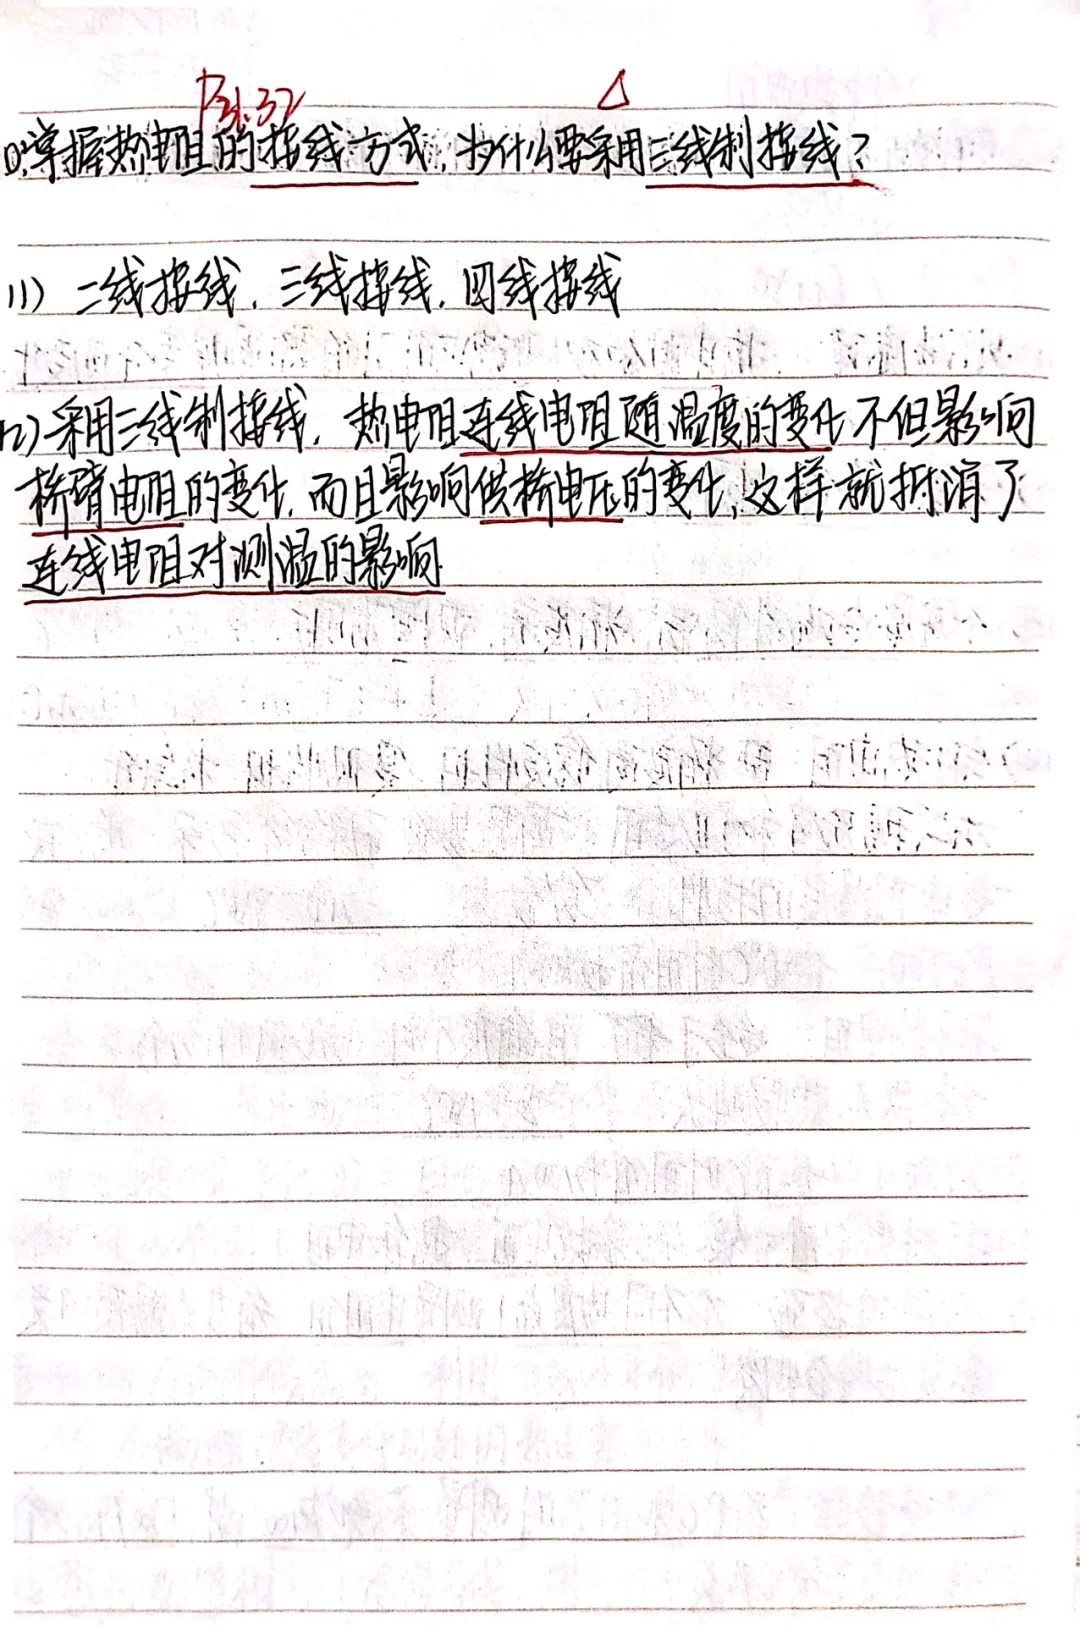 P31.32 △
掌握热电阻的接线方式,为什么要采用三线制接线?
(1) 二线接线,三线接线,四线接线
(2) 采用三线制接线,热电阻连线电阻随温度的变化不但影响
桥臂电阻的变化,而且影响供桥电压的变化,这样就抵消了
连线电阻对测温的影响